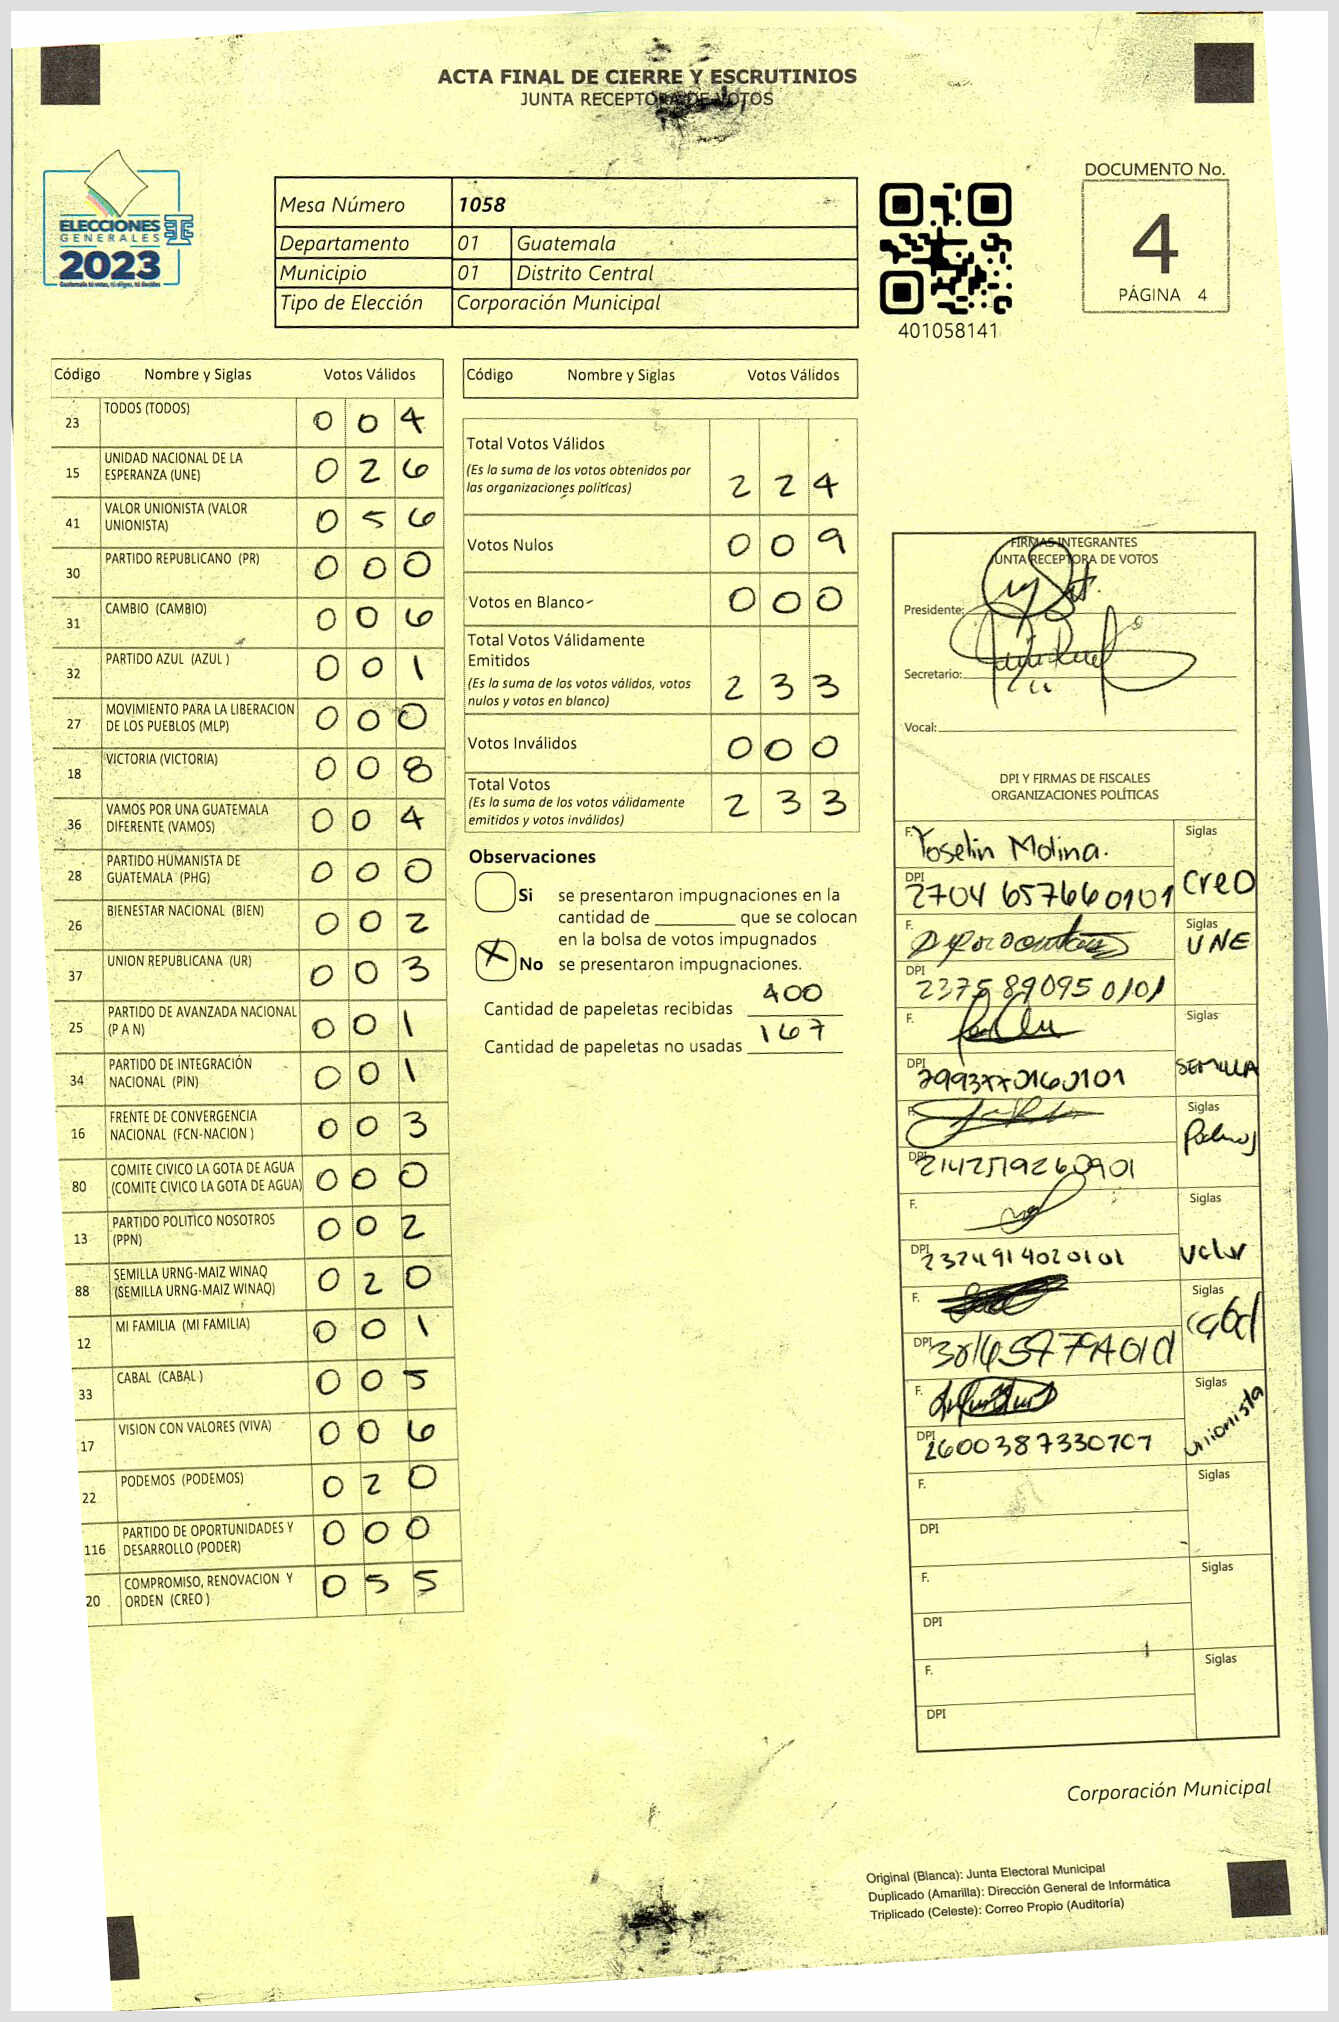 ACTA FINAL DE CIERRE Y ESCRUTINIOS
JUNTA RECEPTORA DE VOTOS
ELECCIONES
GENERALES
2023
Guatemala tú votas, tú eliges, tú decides
Mesa Número 1058
Departamento 01 Guatemala
Municipio 01 Distrito Central
Tipo de Elección Corporación Municipal
401058141
DOCUMENTO No.
4
PÁGINA 4
Código Nombre y Siglas Votos Válidos
23 TODOS (TODOS) 0 0 4
15 UNIDAD NACIONAL DE LA ESPERANZA (UNE) 0 2 6
41 VALOR UNIONISTA (VALOR UNIONISTA) 0 5 6
30 PARTIDO REPUBLICANO (PR) 0 0 0
31 CAMBIO (CAMBIO) 0 0 6
32 PARTIDO AZUL (AZUL ) 0 0 1
27 MOVIMIENTO PARA LA LIBERACION DE LOS PUEBLOS (MLP) 0 0 0
18 VICTORIA (VICTORIA) 0 0 8
36 VAMOS POR UNA GUATEMALA DIFERENTE (VAMOS) 0 0 4
28 PARTIDO HUMANISTA DE GUATEMALA (PHG) 0 0 0
26 BIENESTAR NACIONAL (BIEN) 0 0 2
37 UNION REPUBLICANA (UR) 0 0 3
25 PARTIDO DE AVANZADA NACIONAL (P A N) 0 0 1
34 PARTIDO DE INTEGRACIÓN NACIONAL (PIN) 0 0 1
16 FRENTE DE CONVERGENCIA NACIONAL (FCN-NACION ) 0 0 3
80 COMITE CIVICO LA GOTA DE AGUA (COMITE CIVICO LA GOTA DE AGUA) 0 0 0
13 PARTIDO POLITICO NOSOTROS (PPN) 0 0 2
88 SEMILLA URNG-MAIZ WINAQ (SEMILLA URNG-MAIZ WINAQ) 0 2 0
12 MI FAMILIA (MI FAMILIA) 0 0 1
33 CABAL (CABAL ) 0 0 5
17 VISION CON VALORES (VIVA) 0 0 6
22 PODEMOS (PODEMOS) 0 2 0
116 PARTIDO DE OPORTUNIDADES Y DESARROLLO (PODER) 0 0 0
20 COMPROMISO, RENOVACION Y ORDEN (CREO ) 0 5 5
Código Nombre y Siglas Votos Válidos
Total Votos Válidos
(Es la suma de los votos obtenidos por
las organizaciones políticas) 2 2 4
Votos Nulos 0 0 9
Votos en Blanco 0 0 0
Total Votos Válidamente
Emitidos
(Es la suma de los votos válidos, votos
nulos y votos en blanco) 2 3 3
Votos Inválidos 0 0 0
Total Votos
(Es la suma de los votos válidamente
emitidos y votos inválidos) 2 3 3
Observaciones
Si se presentaron impugnaciones en la
cantidad de ________ que se colocan
en la bolsa de votos impugnados
X No se presentaron impugnaciones.
Cantidad de papeletas recibidas 400
Cantidad de papeletas no usadas 167
FIRMAS INTEGRANTES
JUNTA RECEPTORA DE VOTOS
Presidente:
Secretario:
Vocal:
DPI Y FIRMAS DE FISCALES
ORGANIZACIONES POLÍTICAS
F. Yoselin Molina. Siglas
DPI 2704 65766 0101 Creo
F. Siglas UNE
DPI 2375 89095 0101
F. Siglas
DPI SEMILLA
F. Siglas
DPI
F. Siglas
DPI 2324914020101 Valor
F. Siglas
DPI cabal
F. Siglas
DPI 2600387330707 Unionista
F. Siglas
DPI
F. Siglas
DPI
F. Siglas
DPI
Corporación Municipal
Original (Blanca): Junta Electoral Municipal
Duplicado (Amarilla): Dirección General de Informática
Triplicado (Celeste): Correo Propio (Auditoría)